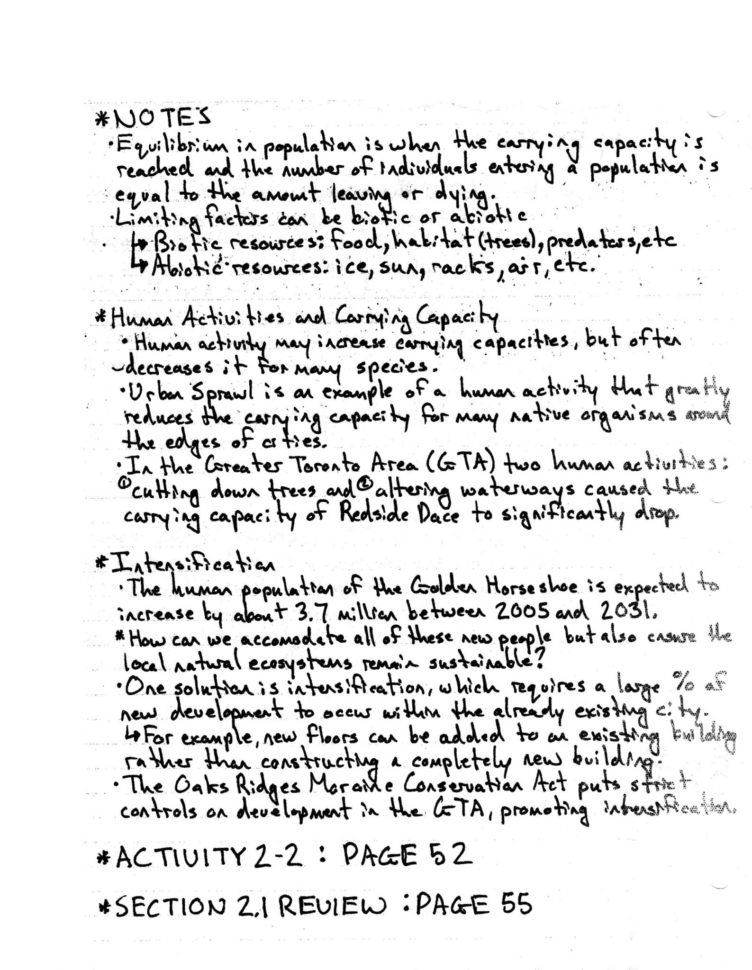 *NOTES
·Equilibrium in population is when the carrying capacity is
reached and the number of individuals entering a population is
equal to the amount leaving or dying.
·Limiting factors can be biotic or abiotic
↳Biotic resources: food, habitat (trees), predators, etc
↳Abiotic resources: ice, sun, rocks, air, etc.
*Human Activities and Carrying Capacity
·Human activity may increase carrying capacities, but often
decreases it for many species.
·Urban Sprawl is an example of a human activity that greatly
reduces the carrying capacity for many native organisms around
the edges of cities.
·In the Greater Toronto Area (GTA) two human activities:
①cutting down trees and ②altering waterways caused the
carrying capacity of Redside Dace to significantly drop.
*Intensification
·The human population of the Golden Horseshoe is expected to
increase by about 3.7 million between 2005 and 2031.
*How can we accomodate all of these new people but also ensure the
local natural ecosystems remain sustainable?
·One solution is intensification, which requires a large % of
new development to occur within the already existing city.
↳For example, new floors can be added to an existing building
rather than constructing a completely new building.
·The Oaks Ridges Moraine Conservation Act puts strict
controls on development in the GTA, promoting intensification.
*ACTIVITY 2-2 : PAGE 52
*SECTION 2.1 REVIEW : PAGE 55